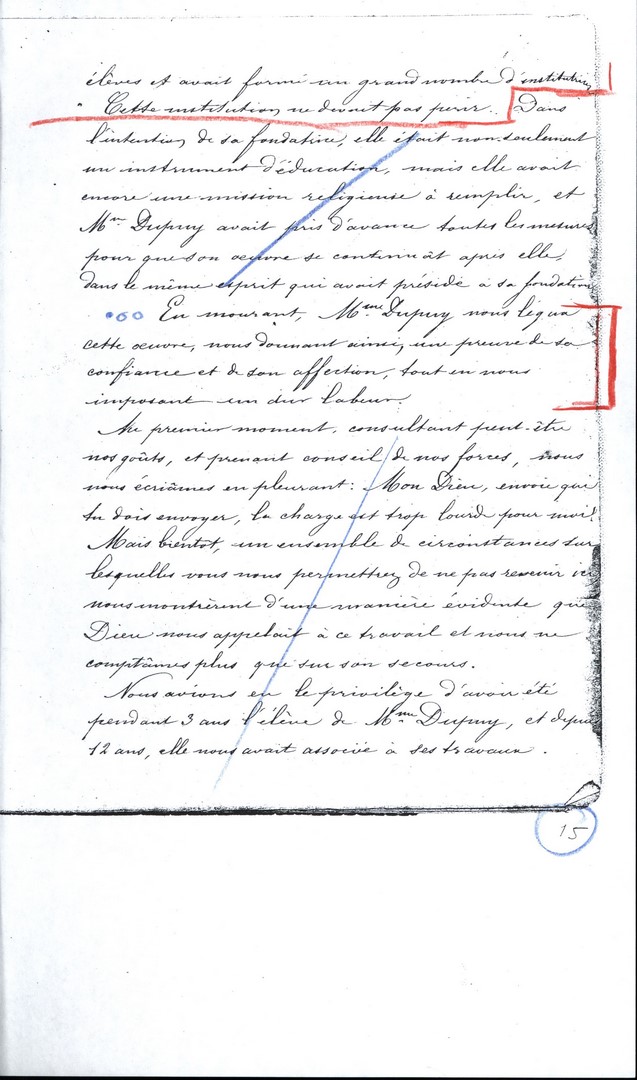 élèves et avait formé un grand nombre d'institutrices
Cette institution ne devait pas périr. Dans
l'intention de sa fondatrice, elle était non seulement
un instrument d'éducation, mais elle avait
encore une mission religieuse à remplir, et
Mme Dupuy avait pris d'avance toutes les mesures
pour que son oeuvre se continuât après elle,
dans le même esprit qui avait présidé à sa fondation
En mourant, Mme Dupuy nous légua
cette oeuvre, nous donnant ainsi, une preuve de sa
confiance et de son affection, tout en nous
imposant un dur labeur.
Au premier moment, consultant peut-être
nos goûts, et prenant conseil de nos forces, nous
nous écriâmes en pleurant: Mon Dieu, envoie qui
tu dois envoyer, la charge est trop lourde pour moi!
Mais bientôt, un ensemble de circonstances sur
lesquelles vous nous permettrez de ne pas revenir ici
nous montrèrent d'une manière évidente que
Dieu nous appelait à ce travail et nous ne
comptâmes plus que sur son secours.
Nous avions eu le privilège d'avoir été
pendant 3 ans l'élève de Mme Dupuy, et depuis
12 ans, elle nous avait associée à ses travaux.
15